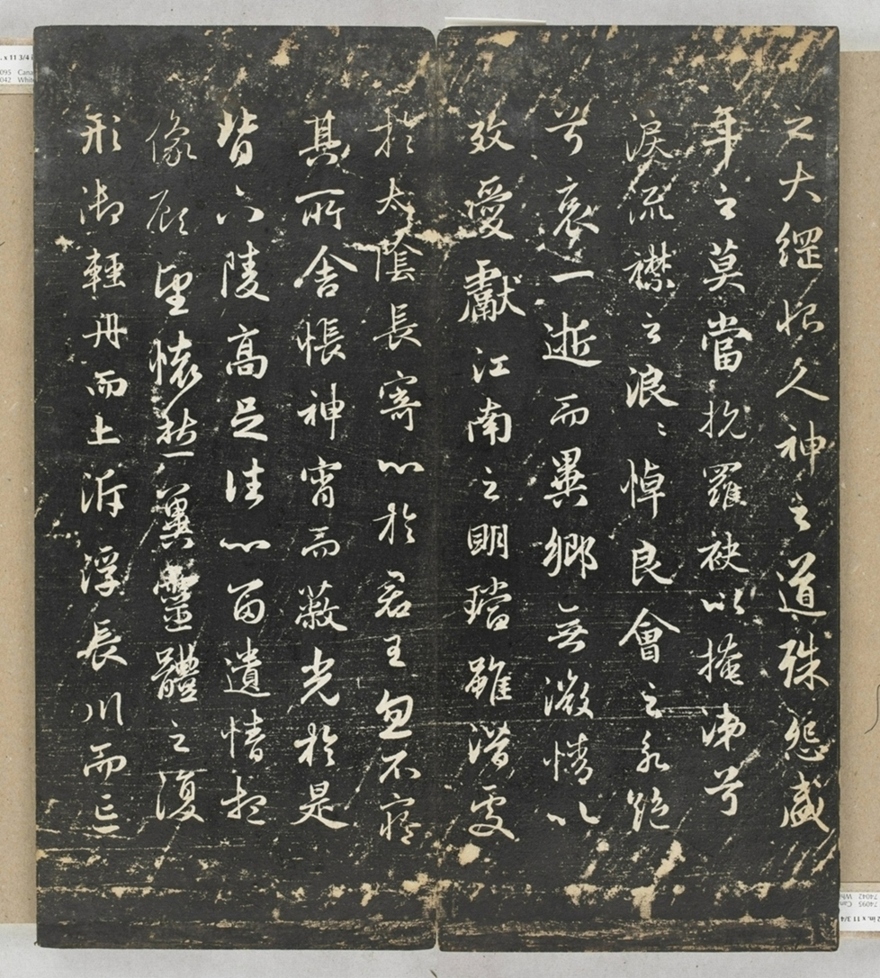 之大綱恨人神之道殊怨盛
年之莫當抗羅袂以掩涕兮
淚流襟之浪〻悼良會之永絕
兮哀一逝而異鄉無微情以
效愛獻江南之明璫雖潛處
於太蔭長寄心於君王忽不寤
其所舍悵神宵而蔽光於是
背下陵高足往心留遺情想
像顧望懷愁冀靈體之復
形御輕舟而上泝浮長川而忘
x 11 3/4